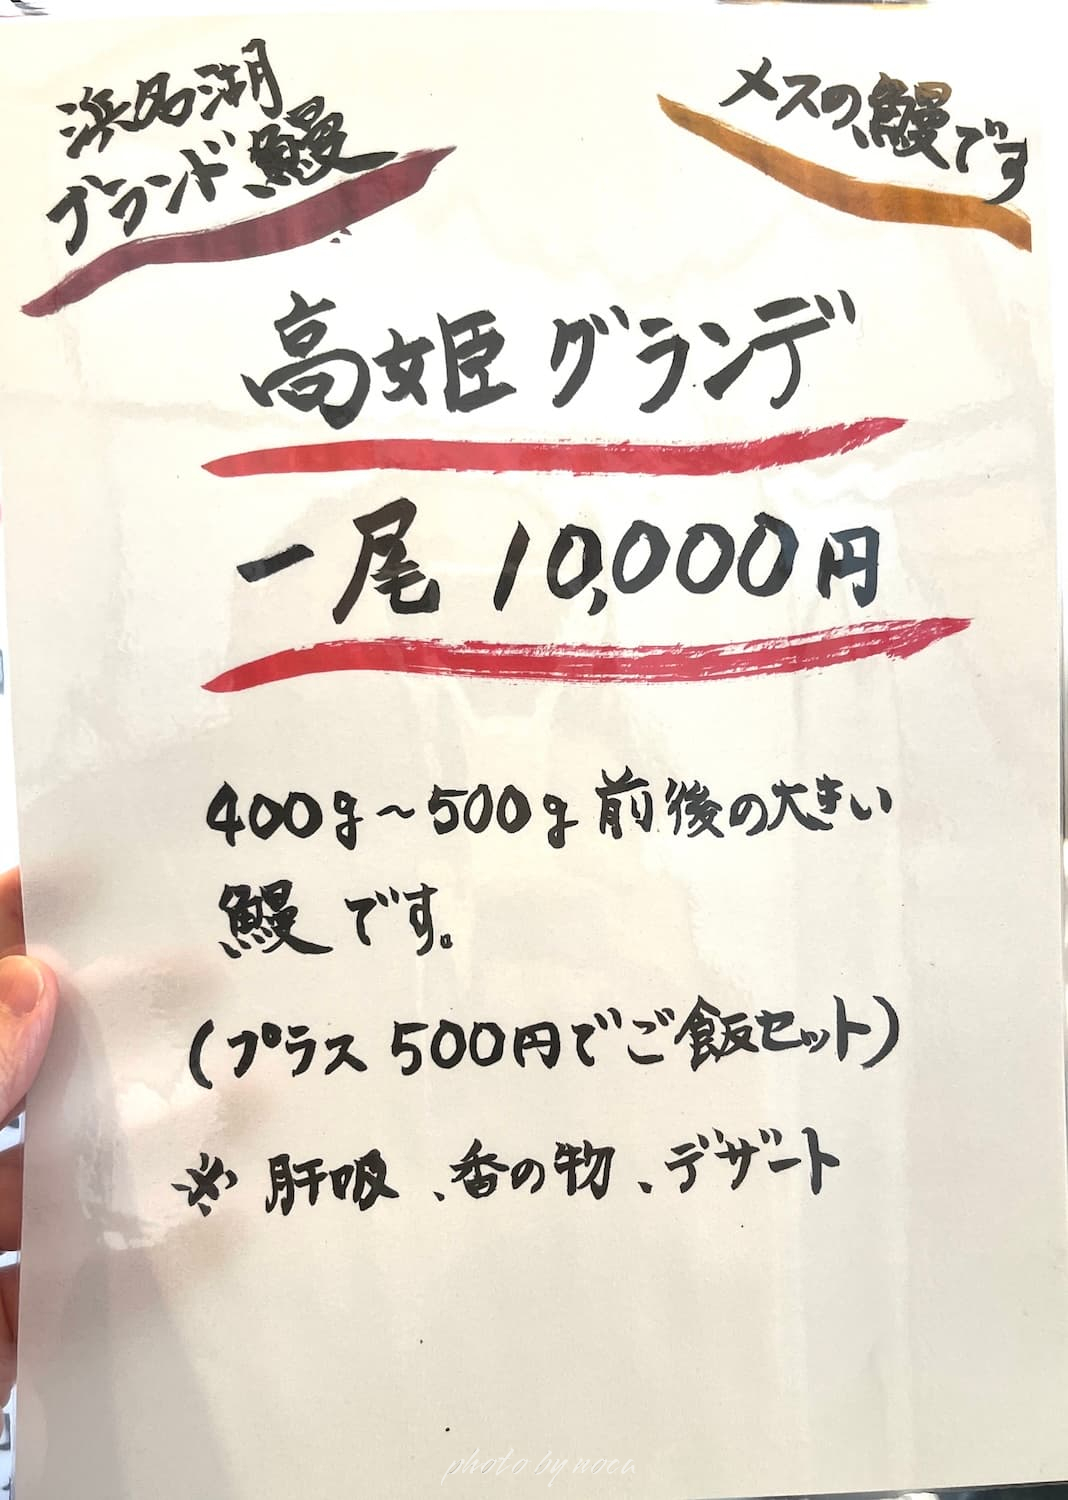 浜名湖
ブランド鰻
メスの鰻です
高姫グランデ
一尾 10,000円
400g～500g前後の大きい
鰻です。
(プラス500円でご飯セット)
※ 肝吸、香の物、デザート
photo by noca